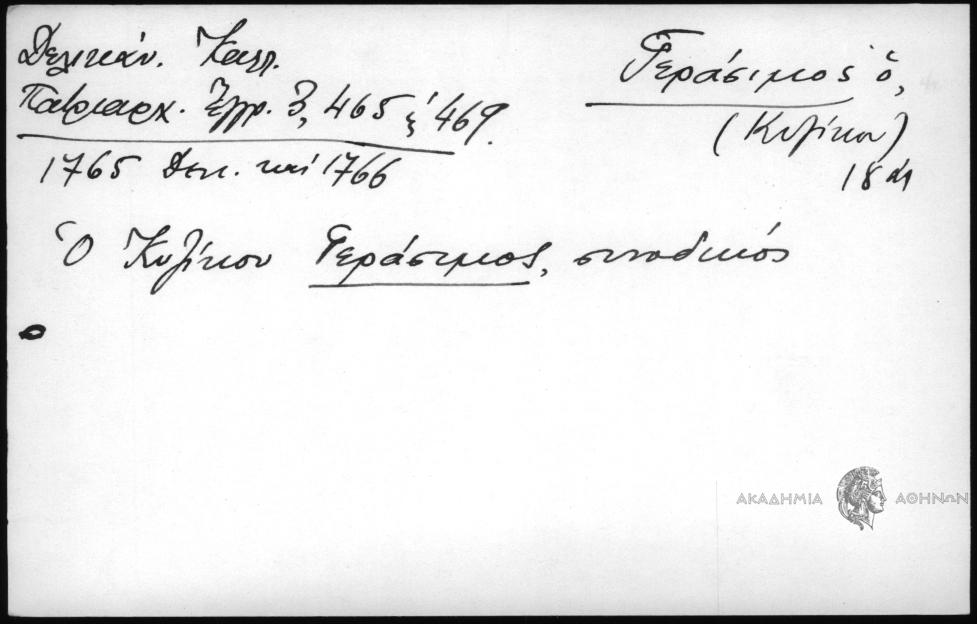 Δελικάν. Καλλ.
Πατριαρχ. Ἔγγρ. 3, 465 ἑ 469.
1765 Δεκ. καί 1766
Γεράσιμος ὁ,
(Κυζίκου)
18
Ὁ Κυζίκου Γεράσιμος, συνοδικός
ΑΚΑΔΗΜΙΑ ΑΘΗΝΩΝ